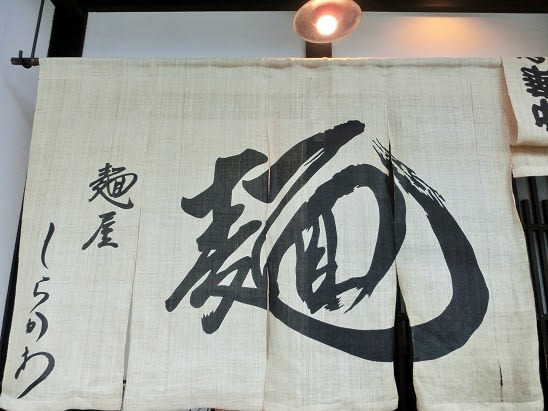 麺
麺屋
しらかわ